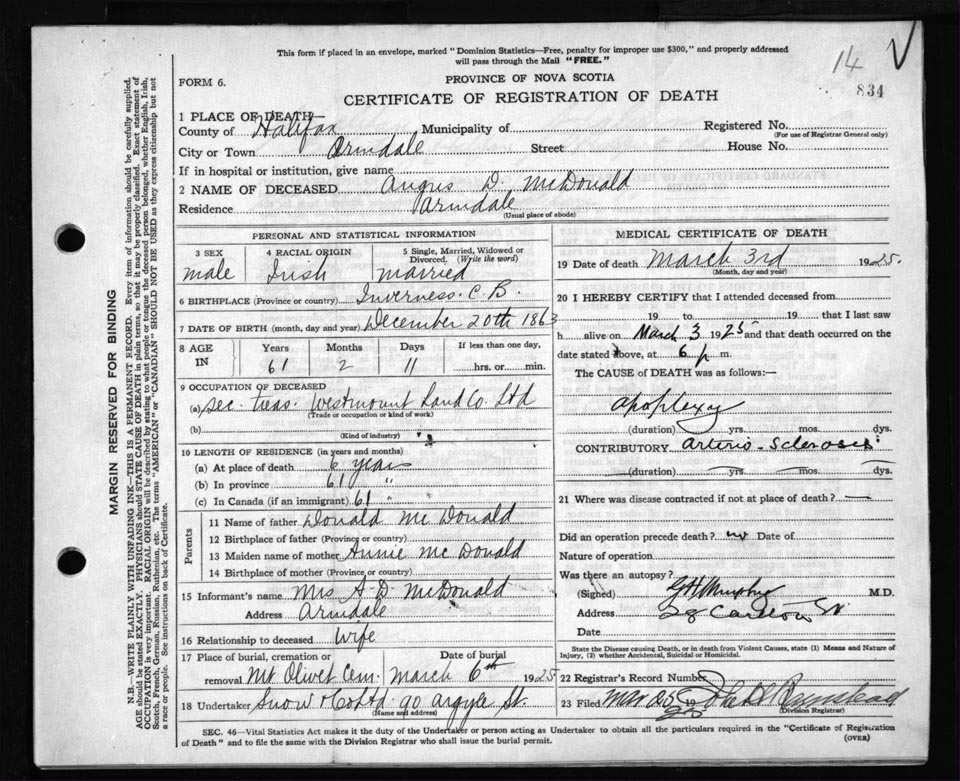 This form if placed in an envelope, marked "Dominion Statistics—Free, penalty for improper use $300," and properly addressed
will pass through the Mail "FREE."
14
834
FORM 6.
PROVINCE OF NOVA SCOTIA
CERTIFICATE OF REGISTRATION OF DEATH
1 PLACE OF DEATH
County of Halifax Municipality of Registered No.
(For use of Registrar General only)
City or Town Armdale Street House No.
If in hospital or institution, give name
2 NAME OF DECEASED Angus D. McDonald
Residence Armdale
(Usual place of abode)
PERSONAL AND STATISTICAL INFORMATION
3 SEX 4 RACIAL ORIGIN 5 Single, Married, Widowed or
Divorced. (Write the word)
male Irish married
6 BIRTHPLACE (Province or country) Inverness. C.B.
7 DATE OF BIRTH (month, day and year) December 20th 1863
8 AGE IN Years Months Days If less than one day,
61 2 11 hrs. or min.
9 OCCUPATION OF DECEASED
(a) Sec. Treas. Westmount Land Co. Ltd
(Trade or occupation or kind of work)
(b)
(Kind of industry)
10 LENGTH OF RESIDENCE (in years and months)
(a) At place of death 6 years
(b) In province 61 "
(c) In Canada (if an immigrant) 61 "
Parents
11 Name of father Donald McDonald
12 Birthplace of father (Province or country)
13 Maiden name of mother Annie McDonald
14 Birthplace of mother (Province or country)
15 Informant's name Mrs A. D. McDonald
Address Armdale
16 Relationship to deceased Wife
17 Place of burial, cremation or Date of burial
removal Mt Olivet Cem. March 6th 1925
18 Undertaker Snow & Co Ltd 90 Argyle St.
(Name and address)
MEDICAL CERTIFICATE OF DEATH
19 Date of death March 3rd 1925.
(Month, day and year)
20 I HEREBY CERTIFY that I attended deceased from
19 to 19 that I last saw
h alive on March 3 1925 and that death occurred on the
date stated above, at 6 p m.
The CAUSE of DEATH was as follows:—
apoplexy
(duration) yrs. mos. dys.
CONTRIBUTORY Arterio-Sclerosis
(duration) yrs. mos. dys.
21 Where was disease contracted if not at place of death? —
Did an operation precede death? no Date of
Nature of operation
Was there an autopsy?
(Signed) Murphy M.D.
Address Carleton St.
Date
State the Disease causing Death, or in death from Violent Causes, state (1) Means and Nature of
Injury, (2) whether Accidental, Suicidal or Homicidal.
22 Registrar's Record Number
23 Filed Mar 19
(Division Registrar)
SEC. 46—Vital Statistics Act makes it the duty of the Undertaker or person acting as Undertaker to obtain all the particulars required in the "Certificate of Registration
of Death" and to file the same with the Division Registrar who shall issue the burial permit.
(OVER)
MARGIN RESERVED FOR BINDING
N.B.—WRITE PLAINLY WITH UNFADING INK—THIS IS A PERMANENT RECORD. Every item of information should be carefully supplied.
AGE should be stated EXACTLY. PHYSICIANS should STATE CAUSE OF DEATH in plain terms, so that it may be properly classified. Exact statement of
OCCUPATION is very important. RACIAL ORIGIN will be described by stating to what people or tongue the deceased person belonged, whether English, Irish,
Scotch, French, German, Russian, Ruthenian, etc. The terms "AMERICAN" or "CANADIAN" SHOULD NOT BE USED as they express citizenship but not
a race or people. See instructions on back of Certificate.